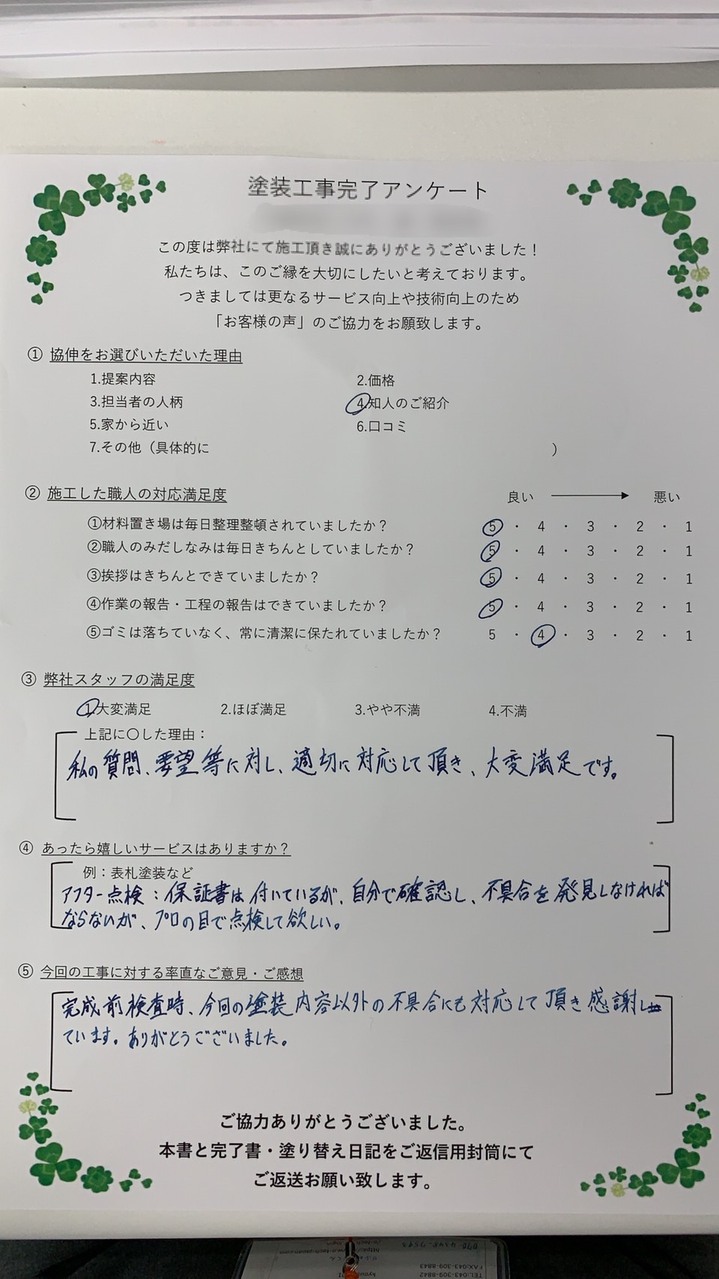 塗装工事完了アンケート
この度は弊社にて施工頂き誠にありがとうございました！
私たちは、このご縁を大切にしたいと考えております。
つきましては更なるサービス向上や技術向上のため
「お客様の声」のご協力をお願致します。
① 協伸をお選びいただいた理由
1.提案内容 2.価格
3.担当者の人柄 4.知人のご紹介
5.家から近い 6.口コミ
7.その他（具体的に ）
② 施工した職人の対応満足度 良い 悪い
①材料置き場は毎日整理整頓されていましたか？ 5 ・ 4 ・ 3 ・ 2 ・ 1
②職人のみだしなみは毎日きちんとしていましたか？ 5 ・ 4 ・ 3 ・ 2 ・ 1
③挨拶はきちんとできていましたか？ 5 ・ 4 ・ 3 ・ 2 ・ 1
④作業の報告・工程の報告はできていましたか？ 5 ・ 4 ・ 3 ・ 2 ・ 1
⑤ゴミは落ちていなく、常に清潔に保たれていましたか？ 5 ・ 4 ・ 3 ・ 2 ・ 1
③ 弊社スタッフの満足度
1.大変満足 2.ほぼ満足 3.やや不満 4.不満
上記に〇した理由：
私の質問、要望等に対し、適切に対応して頂き、大変満足です。
④ あったら嬉しいサービスはありますか？
例：表札塗装など
アフター点検：保証書は付いているが、自分で確認し、不具合を発見しなければ
ならないが、プロの目で点検して欲しい。
⑤ 今回の工事に対する率直なご意見・ご感想
完成前検査時、今回の塗装内容以外の不具合にも対応して頂き感謝し
ています。ありがとうございました。
ご協力ありがとうございました。
本書と完了書・塗り替え日記をご返信用封筒にて
ご返送お願い致します。